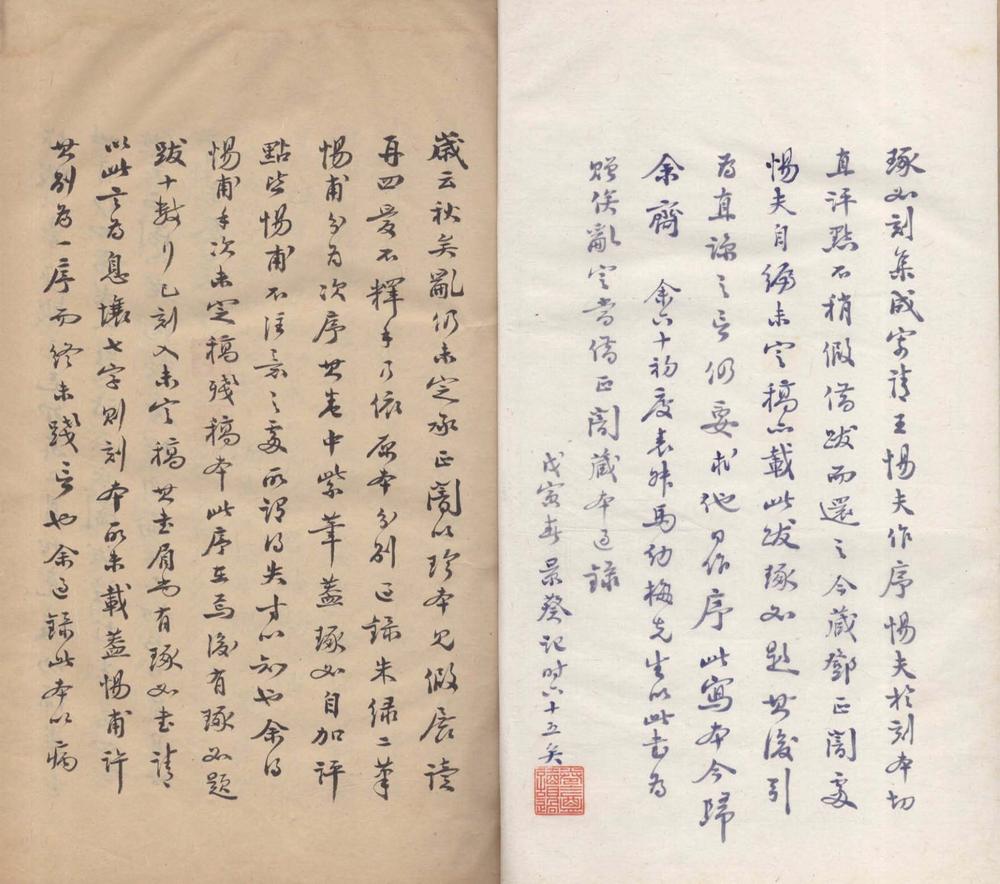 琢如刻集成寄請王惕夫作序惕夫於刻本切
直評點不稍假借跋而還之今藏鄧正闇處
惕夫自編未定稿亦載此跋琢如題其後引
為直諒之言仍要求他日作序此寫本今歸
余齋 余六十初度表姊馬幼梅先生以此書為
贈俟亂定當借正闇藏本過錄
戊寅春景葵記時六十五矣
歲云秋矣亂仍未定承正闇以珍本見假展讀
再四愛不釋手乃依原本分別迻錄朱綠二筆
惕甫分為次序其卷中紫筆蓋琢如自加評
點皆惕甫不注意之處所謂得失寸心知也余得
惕甫手次未定稿殘稿本此序在焉後有琢如題
跋十數行已刻入未定稿其書眉尚有琢如書請
以此言為息壤七字則刻本所未載蓋惕甫許
其別為一序而終未踐言也余過錄此本以病